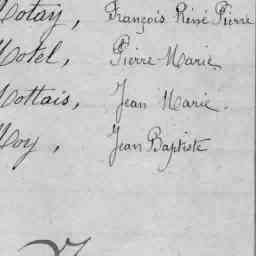 Motay, François René Pierre
Motel, Pierre Marie
Mottais, Jean Marie.
Moy, Jean Baptiste